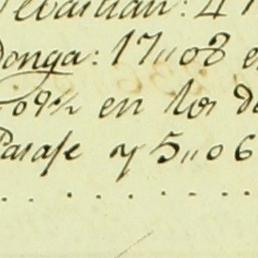 Sebastian: 41
Donga: 17"08 e
09½ en los d
Pasaje y 5"06